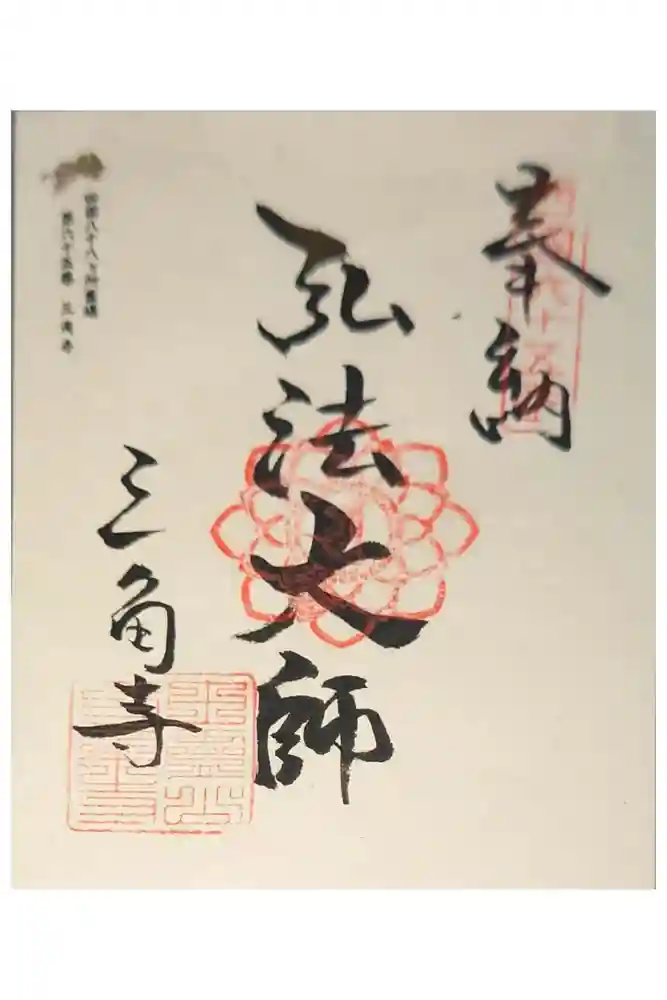 奉納
弘法大師
三角寺
四国八十八ヶ所霊場
第六十五番 三角寺